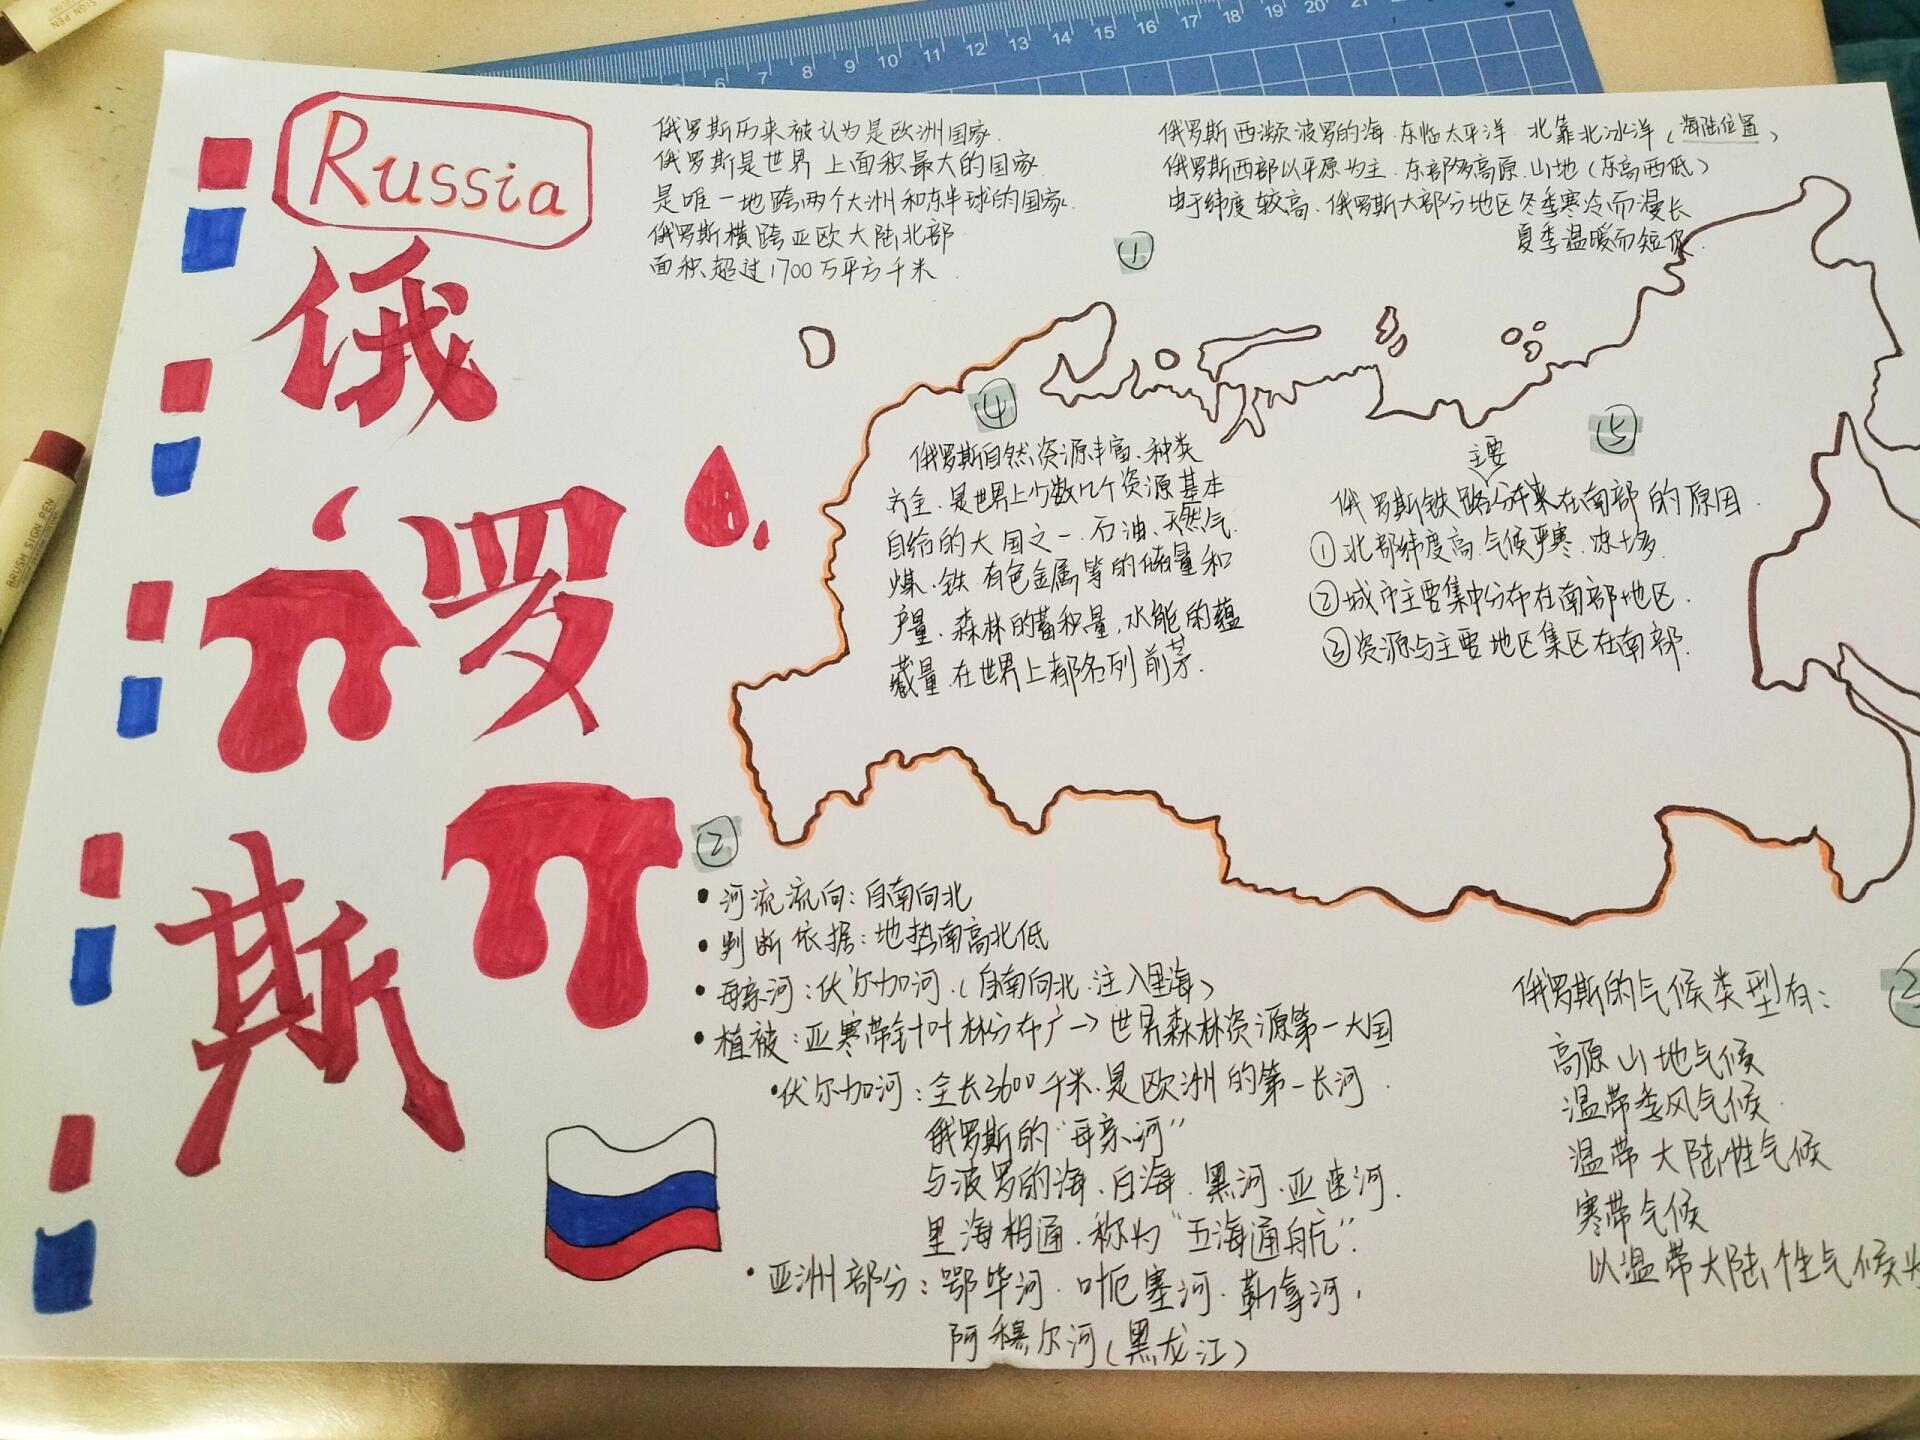 Russia
俄
罗
斯
俄罗斯历来被认为是欧洲国家.
俄罗斯是世界上面积最大的国家
是唯一地跨两个大洲和东半球的国家.
俄罗斯横跨亚欧大陆北部
面积超过1700万平方千米.
俄罗斯西濒波罗的海.东临太平洋 北靠北冰洋(海陆位置)
俄罗斯西部以平原为主.东部多高原.山地(东高西低)
由于纬度较高、俄罗斯大部分地区冬季寒冷而漫长
夏季温暖而短促.
①
④
俄罗斯自然资源丰富、种类
齐全.是世界上少数几个资源基本
自给的大国之一.石油、天然气.
煤.铁.有色金属等的储量和
产量、森林的蓄积量,水能的蕴
藏量.在世界上都名列前茅.
⑤
主要
俄罗斯铁路分布在南部的原因.
①北部纬度高.气候严寒.冻土多.
②城市主要集中分布在南部地区.
③资源与主要地区集区在南部.
②
•河流流向:自南向北
•判断依据:地势南高北低
•母亲河:伏尔加河.(自南向北.注入里海)
•植被:亚寒带针叶林分布广→世界森林资源第一大国
•伏尔加河:全长3600千米.是欧洲的第一长河.
俄罗斯的"母亲河"
与波罗的海、白海.黑河.亚速河.
里海相通.称为"五海通航".
•亚洲部分:鄂毕河.叶尼塞河.勒拿河,
阿穆尔河(黑龙江)
俄罗斯的气候类型有:
高原山地气候
温带季风气候.
温带大陆性气候
寒带气候
以温带大陆性气候
6 7 8 9 10 11 12 13 14 15 16 17 18 19 20 21
SIGN PEN
BRUSH SIGN PEN